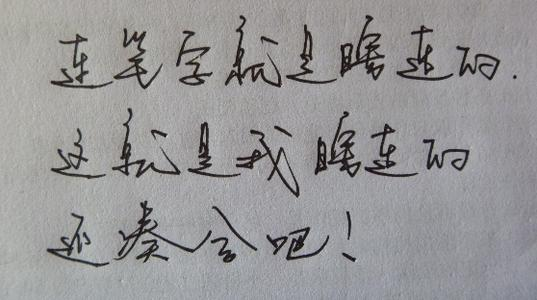 连笔字就是瞎连的.
这就是我瞎连的
还凑合吧!